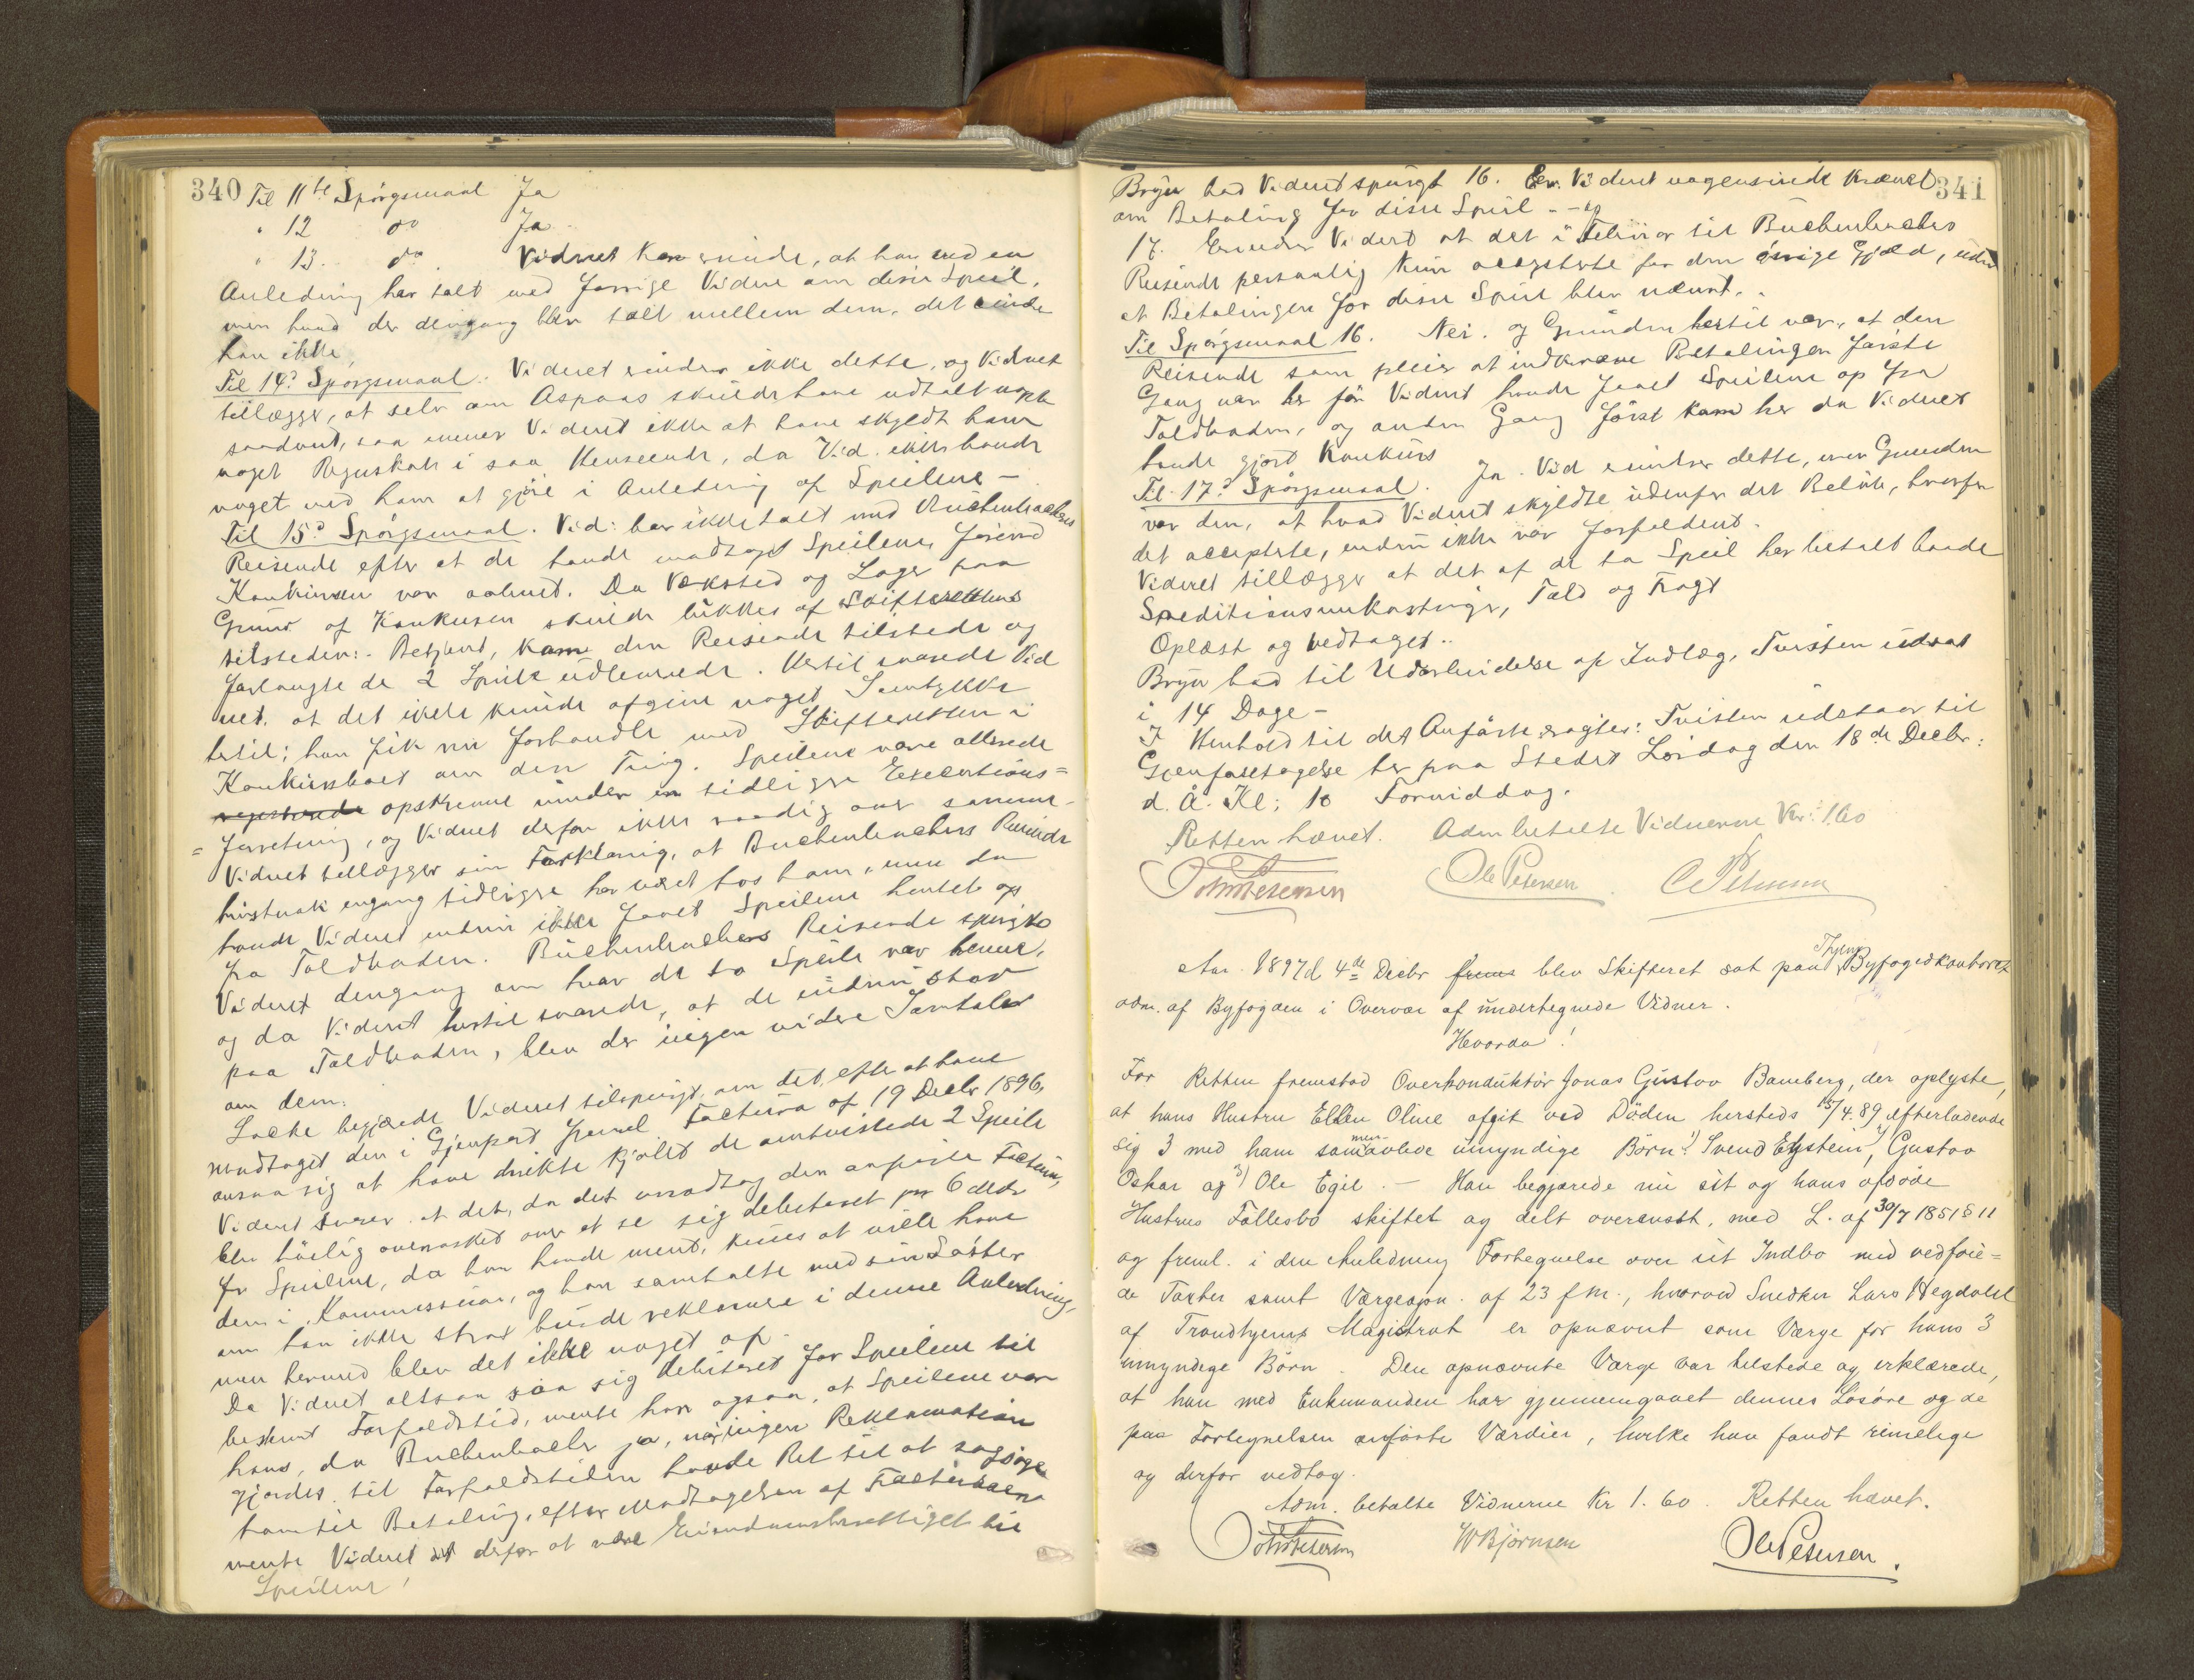 340
Til 11te Spörgsmaal Ja
" 12 do Ja
" 13. do. Vidnet kan erindre, at han ved en
Anledning har talt med forrige Vidne om disse Speil,
men hvad der dengang blev talt mellem dem, det erindrer
han ikke.
Til 14de Spörgsmaal. Vidnet erindrer ikke dette, og Vidnet
tillægger, at selv om Aspaas skulde have udtalt noget
saadant, saa mener Vidnet ikke at have skyldt ham
noget Regnskab i saa Henseende, da Vid. ikke havde
noget med ham at gjöre i Anledning af Speilene -
Til 15de Spörgsmaal. Vid: har ikke talt med Buchenbachers
Reisende efter at de havde modtaget Speilene, förend
Konkursen var aabnet. Da Værksted og Lager paa
Grund af Konkursen skulde lukkes af Skifterettens
tilstedev: Betjent, kom den Reisende tilstede og
forlangte de 2 Speile udleverede. Hertil svarede Vid
net. at det ikke kunde afgive noget Samtykke
hertil; han fik nu forhandle med Skifteretten i
Konkursboet om den Ting. Speilene vare allerede
opskrevne under en tidligere Executions=
= forretning, og Vidnet derfor ikke raadig over samme -
Vidnet tillægger sin Forklaring, at Buchenbachers Reisende
havde Vidnet endnu ikke faaet Speilene hentet op
fra Toldboden. Buchenbachers Reisende spurgte
Vidnet dengang om hvor de to Speile var henne,
og da Vidnet hertil svarede, at de endnu stod
paa Toldboden, blev der ingen videre Samtale
om dem.
Locke begjærede Vidnet tilspurgt, om det, efter at have
modtaget den i Gjenpart freml. Factura af 19 Decbr 1896,
ansaa sig at have direkte kjöbt de omtvistede 2 Speile
Vidnet svarer, at det, da det modtog den anförte Factura,
blev höilig overrasket over at se sig debiteret pr 6 Mdr
for Speilene, da han havde ment, kun at ville have
dem i Kommission, og han samtalte med sin Söster
om han ikke strax burde reklamere i denne Anledning,
men hermed blev det ikke noget af.
Da Vidnet altsaa saa sig debiteret for Speilene til
bestemt Forfaldstid, mente han ogsaa, at Speilene var
hans, da Buchenbacher jo, naar ingen Reklamation
gjordes, til Forfaldstiden havde Ret til at sagsöge
ham til Betaling, efter Modtagelsen af Facturaen
mente Vidnet derfor at være Eiendomsberettiget til
Speilene!
341
Bryn bad Vidnet spurgt 16. Er Vidnet nogensinde krævet
om Betaling for disse Speil - og
17. Erindrer Vidnet at det i Februar til Buchenbachers
Reisende personlig kun accepterte for den övrige Gjæld, uden
at Betalingen for disse Speil blev nævnt.
Til Spörgsmaal 16. Nei. og Grunden hertil var, at den
Reisende som pleier at indkræve Betalingen förste
Gang var her för Vidnet havde faaet Speilene op fra
Toldboden, og anden Gang först kom her da Vidnet
havde gjort Konkurs
Til 17de Spörgsmaal. Ja. Vid erindrer dette, men Grunden
var den, at hvad Vidnet skyldte udenfor det Belöb, hvorfor
det accepterte, endnu ikke var forfaldent.
Vidnet tillægger at det af de to Speil har betalt baade
Speditionsomkostninger, Told og Fragt
Oplæst og vedtaget..
Bryn bad til Udarbeidelse af Indlæg, Tvisten udsat
i 14 Dage -
I Henhold til det Anförte eragtes: Tvisten udstaar til
Gjenforetagelse her paa Stedet Lördag den 18de Decbr:
d. A. Kl: 10 Formiddag.
Retten hævet. Adm betalte Vidnerne Kr: 1.60
Ole Petersen C Petersen
Aar 1897 d 4de Decbr blev Skifteret sat paa Thjems Byfogedkontoret
adm. af Byfogden i Overvær af undertegnede Vidner.
Hvorda!
For Retten fremstod Overkonduktör Jonas Gustav Bamberg, der oplyste,
at hans Hustru Ellen Oline afgik ved Döden hersteds 15/4.89 efterladende
sig 3 med ham sammenavlede umyndige Börn: 1) Svend Eystein, 2) Gustav
Oskar og 3) Ole Egil. - Han begjærede nu sit og hans afdöde
Hustrus Fællesbo skiftet og delt overensst. med L. af 30/7 1851 § 11
og freml. i den Anledning Fortegnelse over sit Indbo med vedföie=
de Taxter samt Værgeopn. af 23 f M., hvorved Snedker Lars Hegdahl
af Trondhjems Magistrat er opnævnt som Værge for hans 3
umyndige Börn. Den opnævnte Værge var tilstede og erklærede,
at han med Enkemanden har gjennemgaaet dennes Lösöre og de
paa Fortegnelsen anförte Værdier, hvilke han fandt rimelige
og derfor vedtog.
Adm. betalte Vidnerne Kr 1.60. Retten hævet.
W Bjørnsen Ole Petersen.